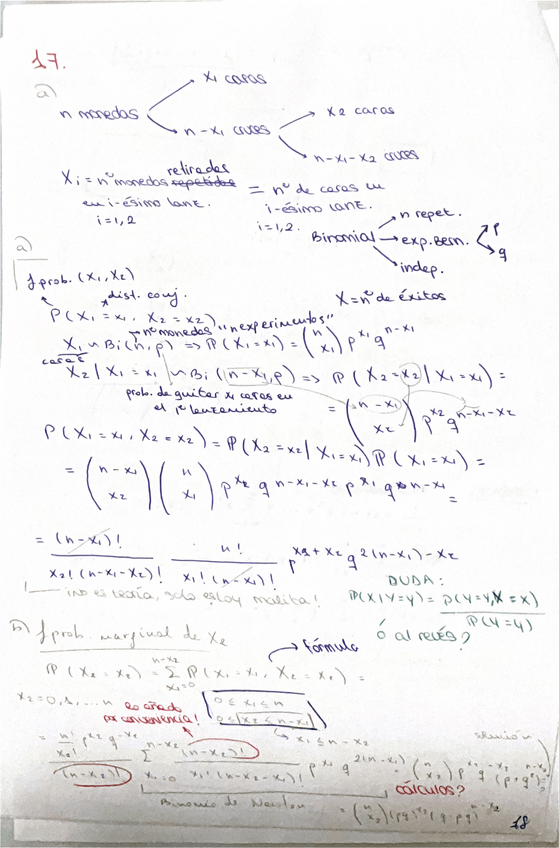 17.
a)
x1 caras
n monedas
n-x1 cruces
x2 caras
n-x1-x2 cruces
Xi = nº monedas retiradas = nº de caras en
en i-ésimo lanz. i-ésimo lanz.
i=1,2 i=1,2.
Binomial
n repet.
exp. Bern.
p
q
indep.
a)
f prob. (X1, X2)
dist. conj.
X = nº de éxitos
P(X1 = x1, X2 = x2)
nº monedas "n experimentos"
X1 ~ Bi(n,p) => P(X1=x1) = (n x1) p^x1 q^n-x1
caras
X2 / X1 = x1 ~ Bi(n-x1, p) => P(X2=x2 / X1=x1) =
prob. de quitar x1 caras en
el 1º lanzamiento
= (n-x1 x2) p^x2 q^n-x1-x2
P(X1=x1, X2=x2) = P(X2=x2 / X1=x1) P(X1=x1) =
= (n-x1 x2) (n x1) p^x2 q^n-x1-x2 p^x1 q^n-x1 =
= (n-x1)! / x2! (n-x1-x2)! n! / x1! (n-x1)! p^x1+x2 q^2(n-x1)-x2
¡no es teoría, solo estoy malita!
DUDA:
P(X/Y=y) = P(Y=y, X=x) / P(Y=y)
ó al revés?
b) f prob. marginal de X2
fórmula
P(X2=x2) = Σ x1=0 n-x2 P(X1=x1, X2=x2) =
x2=0,1,...n
lo añado
por conveniencia!
0 ≤ x1 ≤ n
0 ≤ x2 ≤ n-x1
x1 ≤ n-x2
solución
= n!/x2! p^x2 q^-x2 / (n-x2)! Σ x1=0 n-x2 (n-x2)! / x1! (n-x2-x1)! p^x1 q^2(n-x1) = (n x2) p^x2 q^-x2
cálculos?
Binomio de Newton
= (n x2) (pq)^x2
18